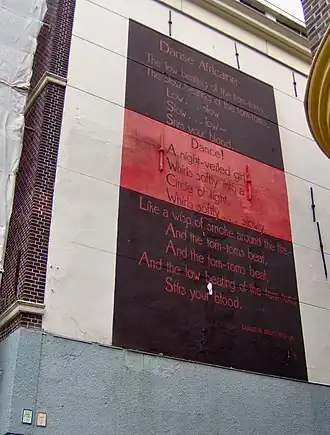 Danse Africaine
The low beating of the tom-toms,
The slow beating of the tom-toms,
Low . . . slow
Slow . . . low —
Stirs your blood.
Dance!
A night-veiled girl
Whirls softly into a
Circle of light.
Whirls softly . . . slowly,
Like a wisp of smoke around the fire —
And the tom-toms beat,
And the tom-toms beat,
And the low beating of the tom-toms
Stirs your blood.